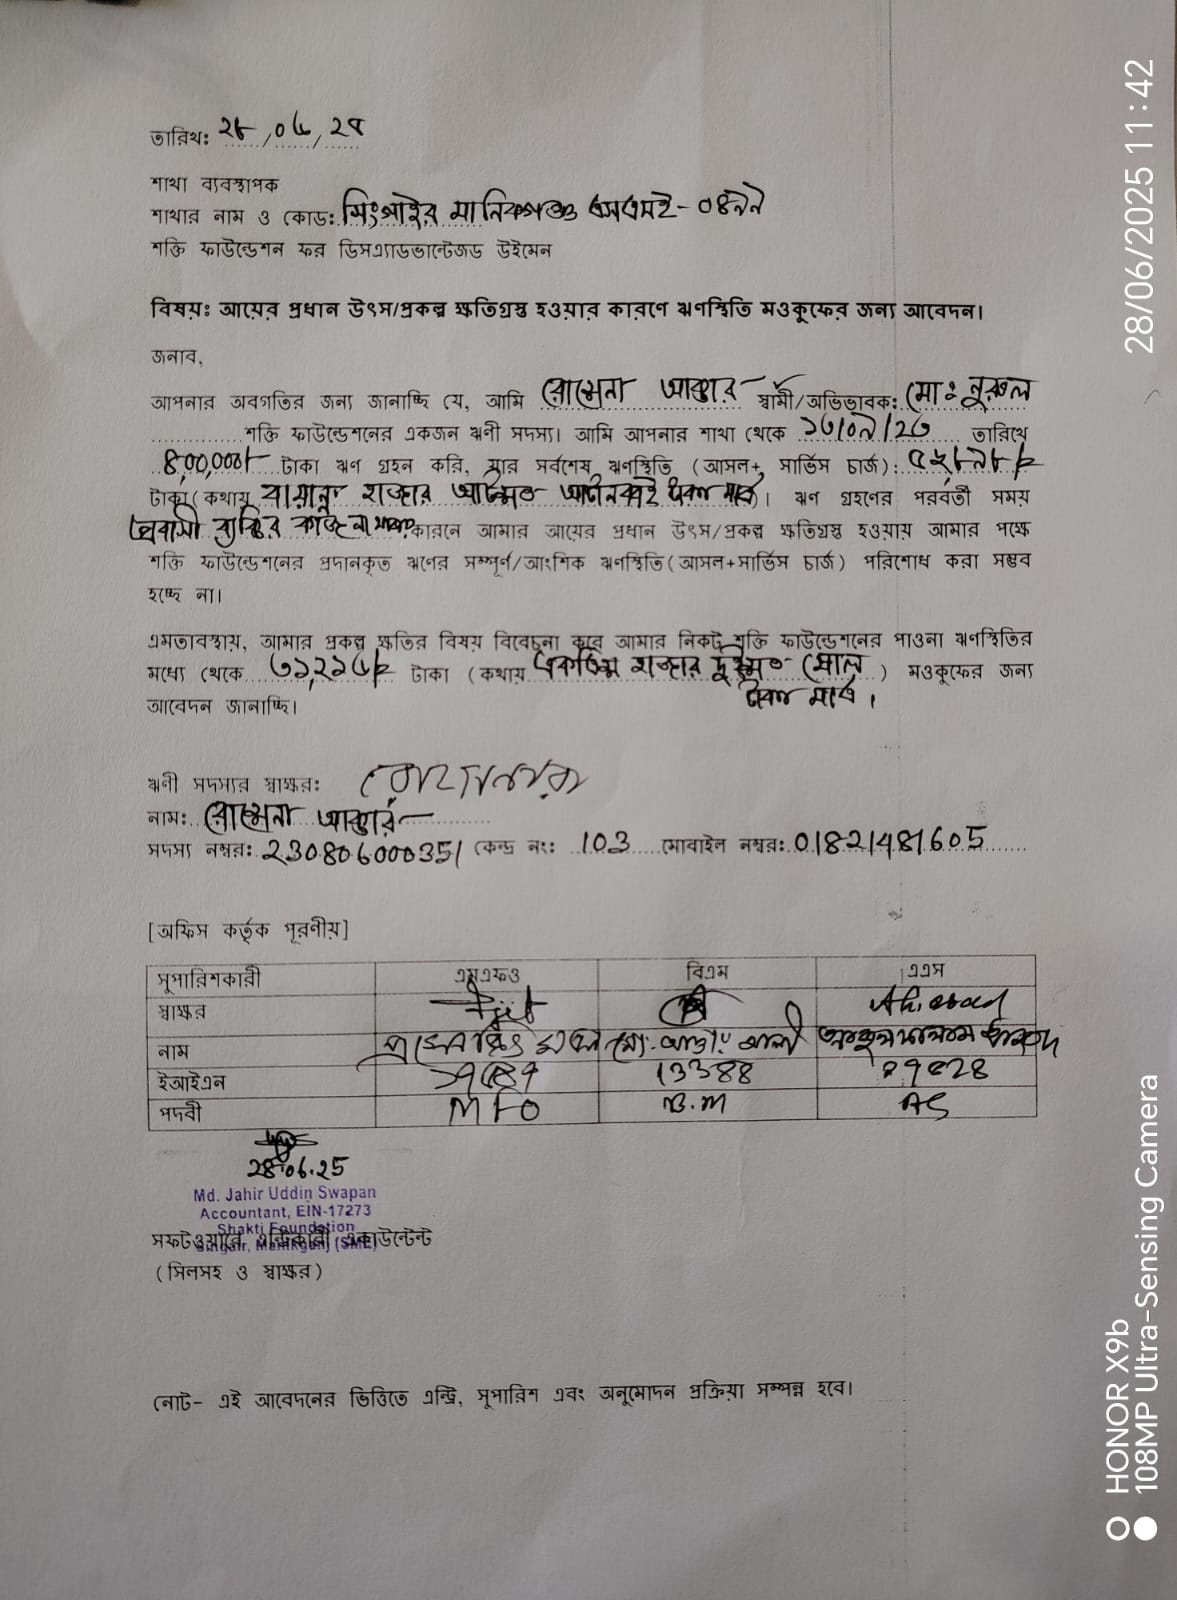 তারিখঃ ২৮/০৬/২৫
শাখা ব্যবস্থাপক
শাখার নাম ও কোডঃ সিংগাইর মানিকগঞ্জ এসএমই-০৪৯৯
শক্তি ফাউন্ডেশন ফর ডিসএ্যাডভান্টেজড উইমেন
বিষয়ঃ আয়ের প্রধান উৎস/প্রকল্প ক্ষতিগ্রস্ত হওয়ার কারণে ঋণস্থিতি মওকুফের জন্য আবেদন।
জনাব,
আপনার অবগতির জন্য জানাচ্ছি যে, আমি আক্তার স্বামী/অভিভাবক: মোঃ নুরুল
শক্তি ফাউন্ডেশনের একজন ঋনী সদস্য। আমি আপনার শাখা থেকে তারিখে
টাকা ঋণ গ্রহন করি, যার সর্বশেষ ঋণস্থিতি (আসল+ সার্ভিস চার্জ): ৫২৮৯৮/=
টাকা (কথায় বায়ান্ন হাজার আটশত আটানব্বই টাকা মাত্র)। ঋণ গ্রহণের পরবর্তী সময়
প্রবাসী ব্যক্তির কাজ না থাকায় কারনে আমার আয়ের প্রধান উৎস/প্রকল্প ক্ষতিগ্রস্ত হওয়ায় আমার পক্ষে
শক্তি ফাউন্ডেশনের প্রদানকৃত ঋণের সম্পূর্ণ/আংশিক ঋণস্থিতি(আসল+সার্ভিস চার্জ) পরিশোধ করা সম্ভব
হচ্ছে না।
এমতাবস্থায়, আমার প্রকল্প ক্ষতির বিষয় বিবেচনা করে আমার নিকট শক্তি ফাউন্ডেশনের পাওনা ঋণস্থিতির
মধ্যে থেকে ৩১,২১৬/= টাকা (কথায় একত্রিশ হাজার দুইশত ষোল ) মওকুফের জন্য
টাকা মাত্র।
আবেদন জানাচ্ছি।
ঋনী সদস্যর স্বাক্ষর:
নাম: আক্তার
সদস্য নম্বর: 230806000351 কেন্দ্র নং: 103 মোবাইল নম্বর: 01821481605
[অফিস কর্তৃক পূরণীয়]
সুপারিশকারী এমএফও বিএম এএস
স্বাক্ষর
নাম
ইআইএন 13388
পদবী MFO B.M AS
28.06.25
Md. Jahir Uddin Swapan
Accountant, EIN-17273
Shakti Foundation
Singair, Manikganj (SME)
সফটওয়ারে এন্ট্রিকারী একাউন্টেন্ট
(সিলসহ ও স্বাক্ষর)
নোট- এই আবেদনের ভিত্তিতে এন্ট্রি, সুপারিশ এবং অনুমোদন প্রক্রিয়া সম্পন্ন হবে।
28/06/2025 11:42
HONOR X9b
108MP Ultra-Sensing Camera